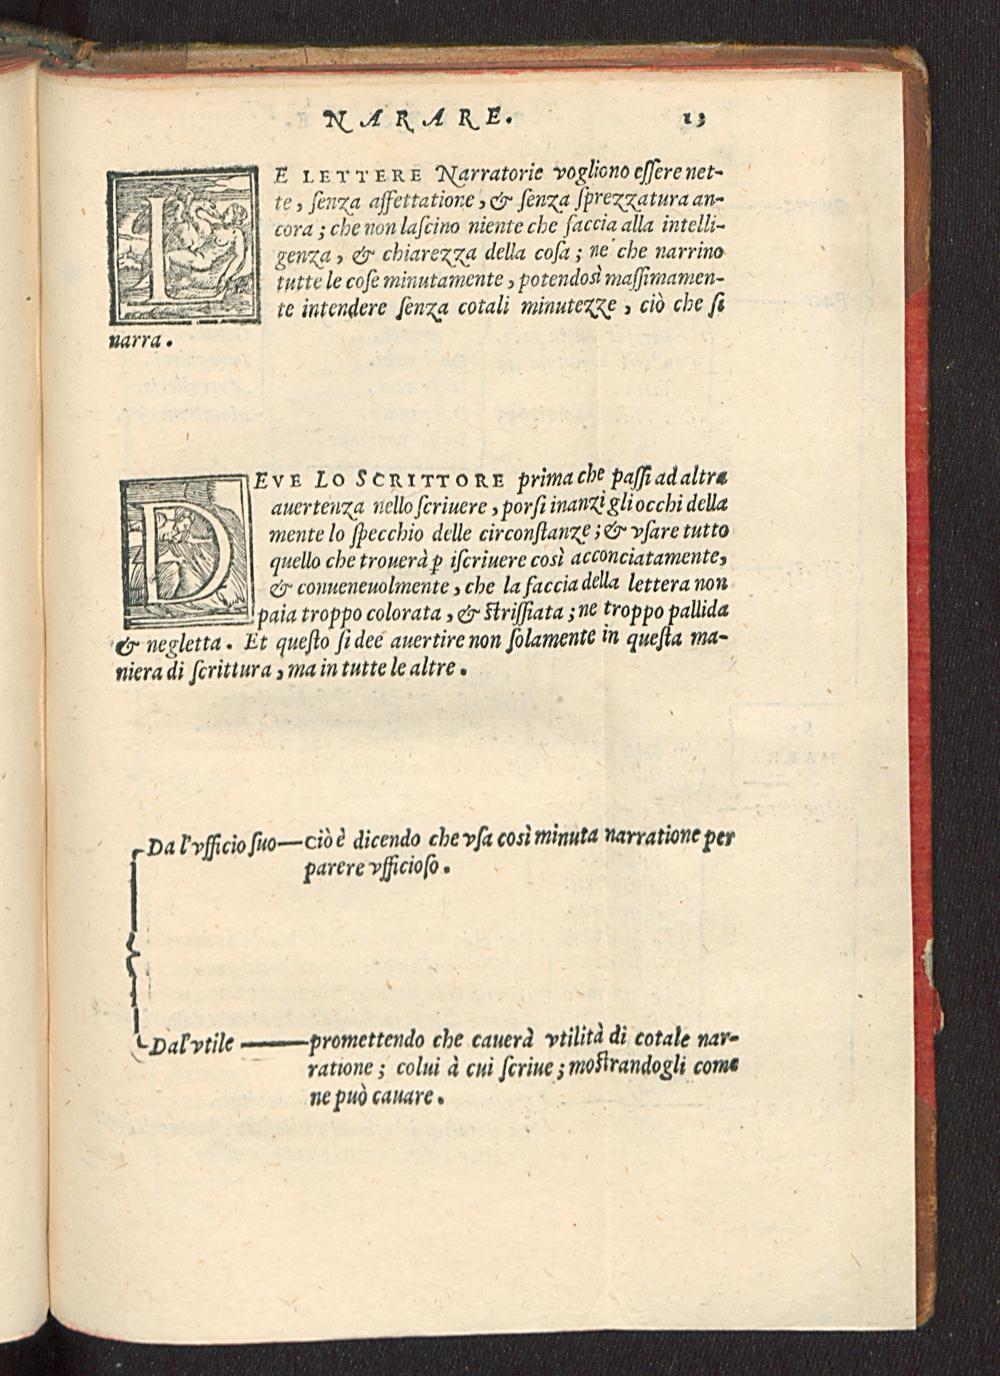 NARARE. 13
LE LETTERE Narratorie vogliono essere net-
te, senza affettatione, & senza sprezzatura an-
cora; che non lascino niente che faccia alla intelli-
genza, & chiarezza della cosa; ne che narrino
tutte le cose minutamente, potendosi massimamen-
te intendere senza cotali minutezze, ciò che si
narra.
DEVE LO SCRITTORE prima che passi ad altra
auertenza nello scriuere, porsi inanzi gli occhi della
mente lo specchio delle circonstanze; & vsare tutto
quello che trouerà ꝑ iscriuere così acconciatamente,
& conueneuolmente, che la faccia della lettera non
paia troppo colorata, & strissiata; ne troppo pallida
& negletta. Et questo si dee auertire non solamente in questa ma-
niera di scrittura, ma in tutte le altre.
Da l'vfficio suo—ciò è dicendo che vsa così minuta narratione per
parere vfficioso.
Dal'vtile—promettendo che cauerà vtilità di cotale nar-
ratione; colui à cui scriue; mostrandogli come
ne può cauare.